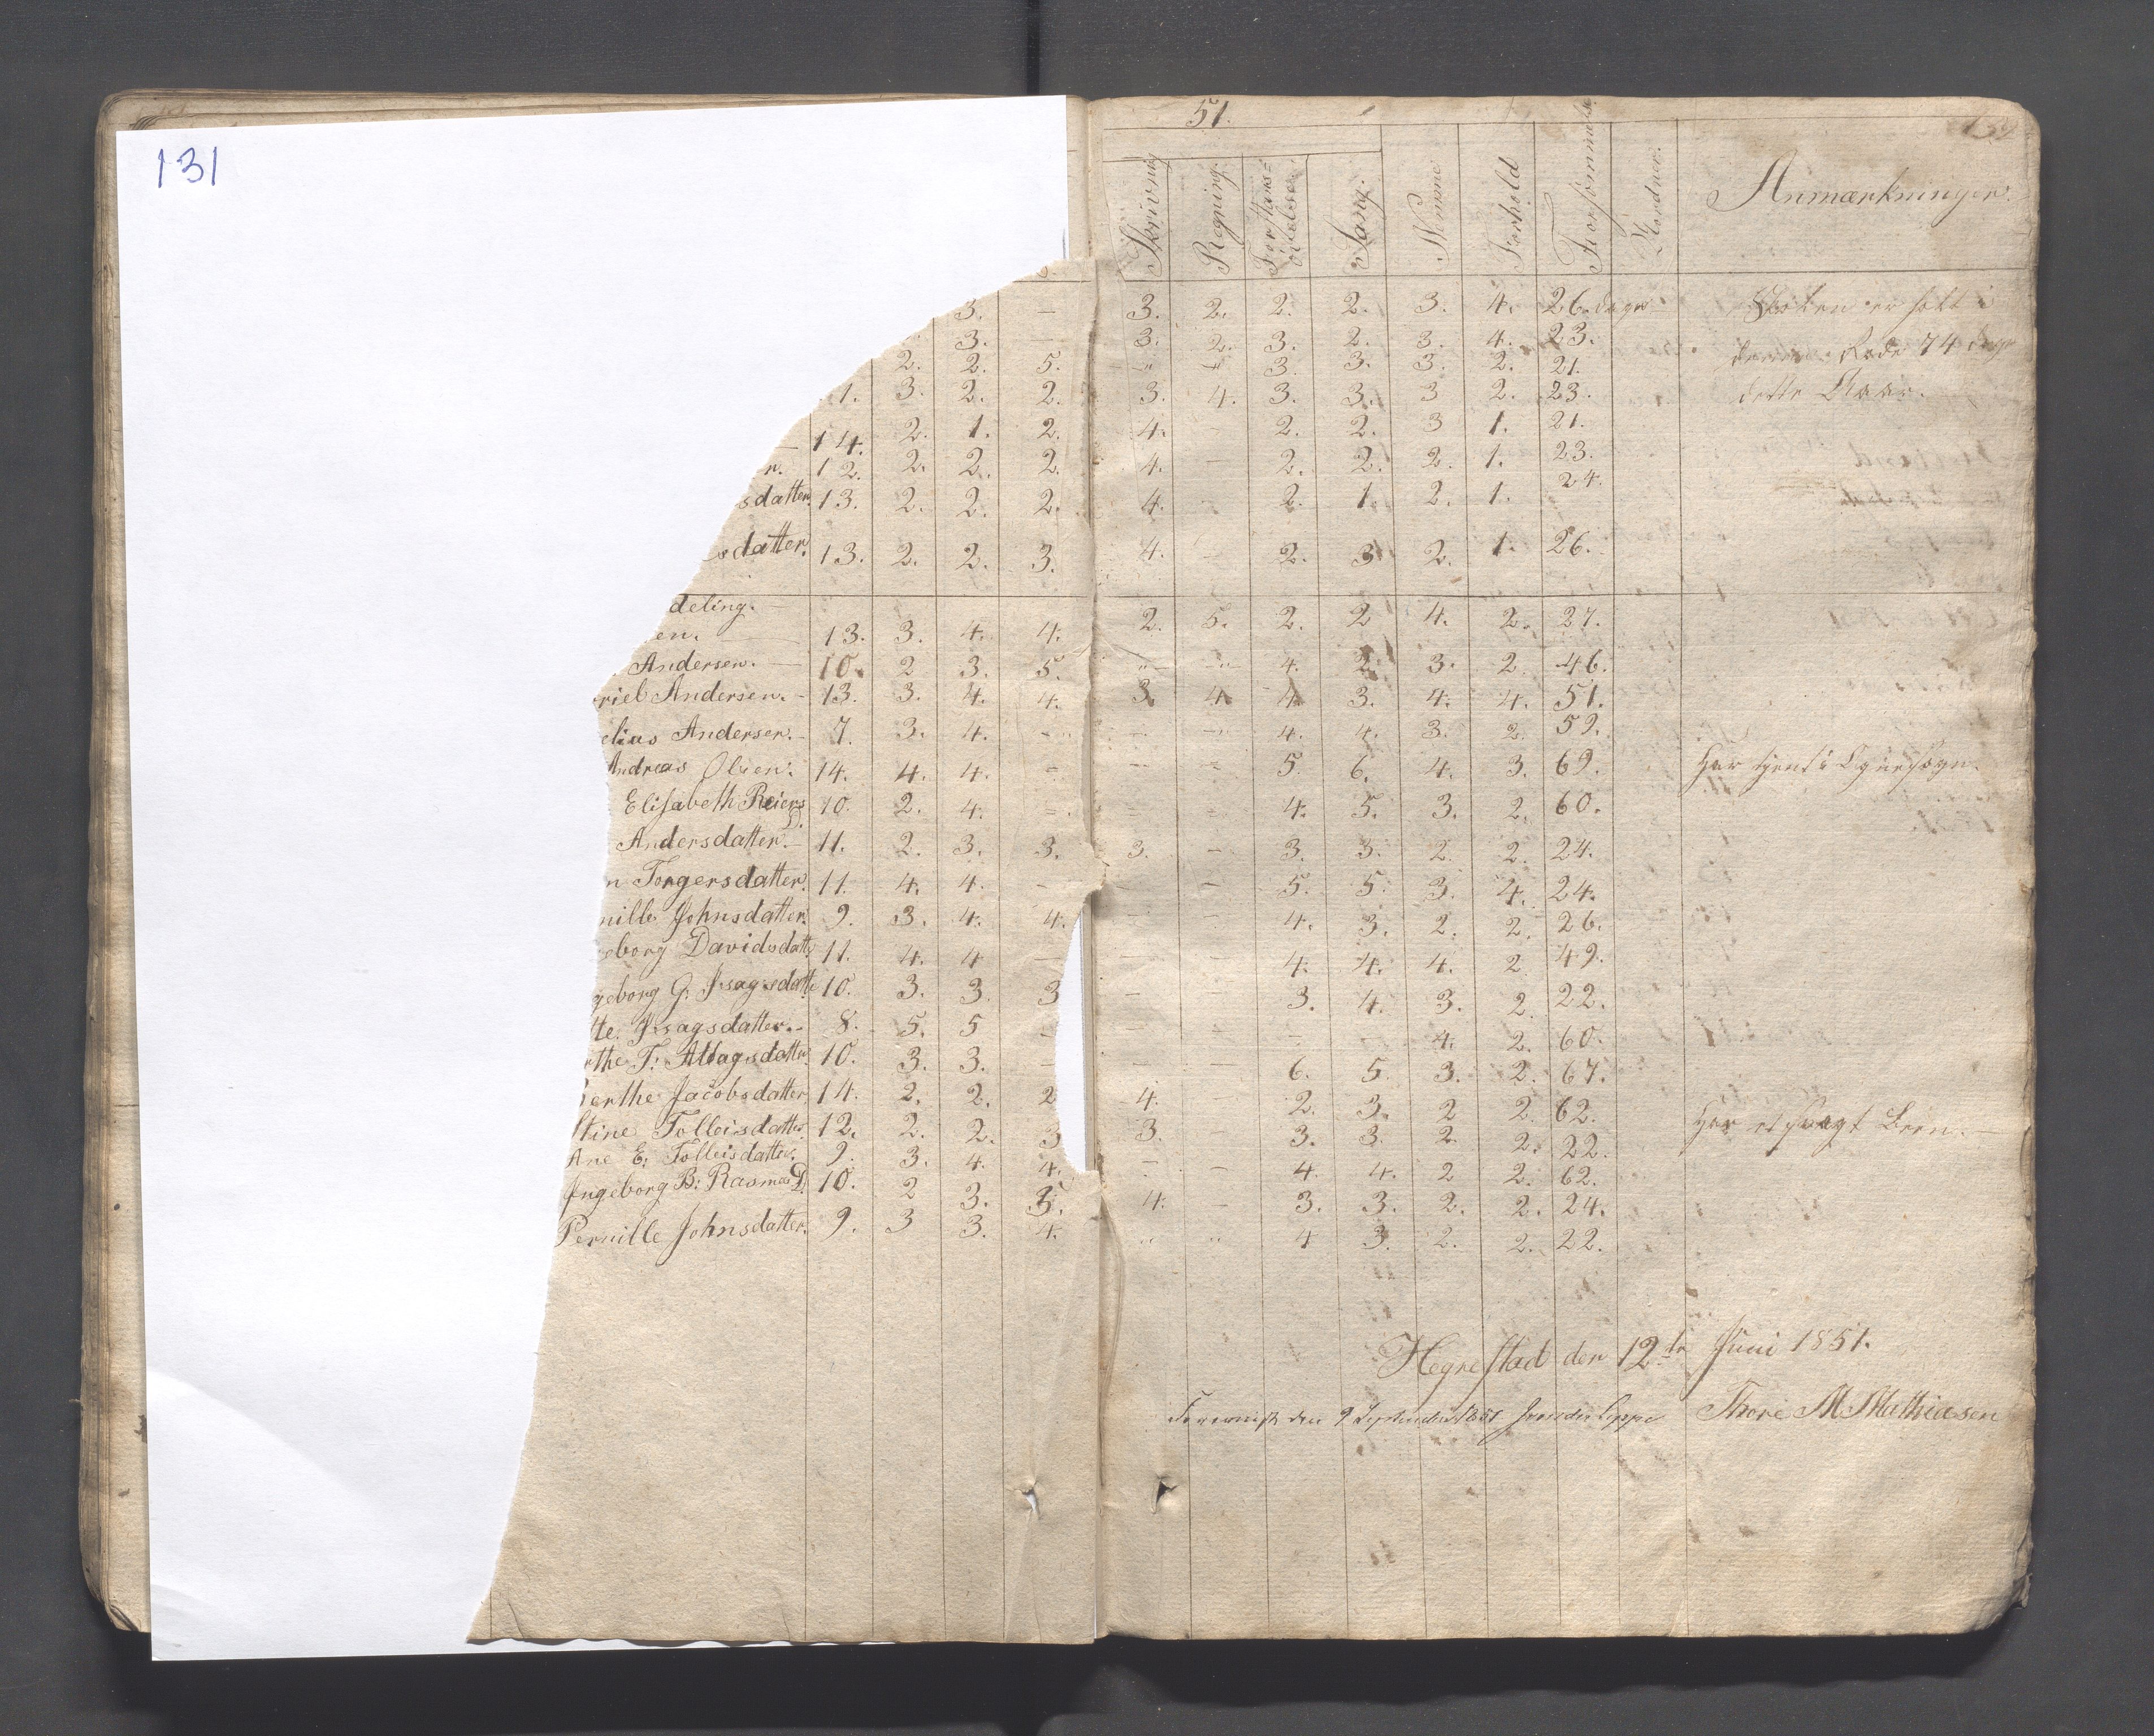 131
3. —
3. —
2. 2. 5.
1. 3. 2. 2.
— 14. 2. 1. 2.
r. 12. 2. 2. 2.
sdatter. 13. 2. 2. 2.
sdatter. 13. 2. 2. 3.
deling. —
en. — 13. 3. 4. 4.
Andersen. — 10. 2 3. 5.
riel Andersen. - 13. 3. 4. 4.
elias Andersen. - 7. 3. 4. - "
Andreas Olsen. 14. 4. 4. =
Elisabeth Reiers D. 10. 2. 4. = .
Andersdatter. - 11. 2. 3. 3.
n Torgersdatter. 11. 4. 4. -
nille Johnsdatter. 9. 3. 4. 4.
eborg Davidsdatt. 11. 4. 4 —
geborg G: Isagsdatt. 10. 3. 3. 3
te. Isagsdatter. - 8. 5. 5 -
rthe T: Aslagsdatter 10. 3. 3. -
Berthe Jacobsdatter 14. 2. 2. 2
Stine Tolleisdatter. 12. 2. 2. 3
Ane E: Tolleisdatter. 9. 3. 4. 4.
Ingeborg B: Rasmus D. 10. 2 3. 3.
Pernille Johnsdatter. 9. 3 3. 4.
51.
132
Skrivning Regning. Forstands= övelser Sang. Nemme Forhold Forsömmelse Anmærkninger.
3. 2. 2. 2. 3. 4. 26. dage Skolen er holt i
3. 2. 3. 2. 3. 4. 23. denne Rode 74 dage
- " " 3. 3. 3. 2. 21.
3. 4. 3. 3. 3 2. 23. dette Aar.
4. - 2. 2. 3 1. 21.
4. — 2. 2. 2. 1. 23.
4. - 2. 1. 2. 1. 24.
4. - 2. 3 2. 1. 26.
2. 5. 2. 2 4. 2. 27.
" " 4. 2. 3. 2. 46.
3. 4 4 3. 4. 4. 51.
- - " 4. 4. 3. 2. 59.
- - 5. 6. 4. 3. 69. Har tjent i Ogne Sogn.
- = 4. 5. 3. 2. 60.
3. - 3. 3. 2. 2. 24.
- - 5. 5. 3. 4. 24.
- - 4. 3. 2. 2. 26.
- - 4. 4. 4. 2. 49.
- - 3. 4. 3. 2. 22.
- = - 4. 2. 60.
- - 6. 5. 3. 2. 67.
4. - 2. 3. 2 2. 62.
3. - 3. 3. 2. 2. 22. Har et svagt Been. —
- - 4. 4. 2 2. 62.
4. - 3. 3. 2. 2. 24.
" " 4 3. 2. 2. 22.
Hegrestad den 12te Juni 1851.
Foreviist den 9 September 1851 Thore M Mathiasen